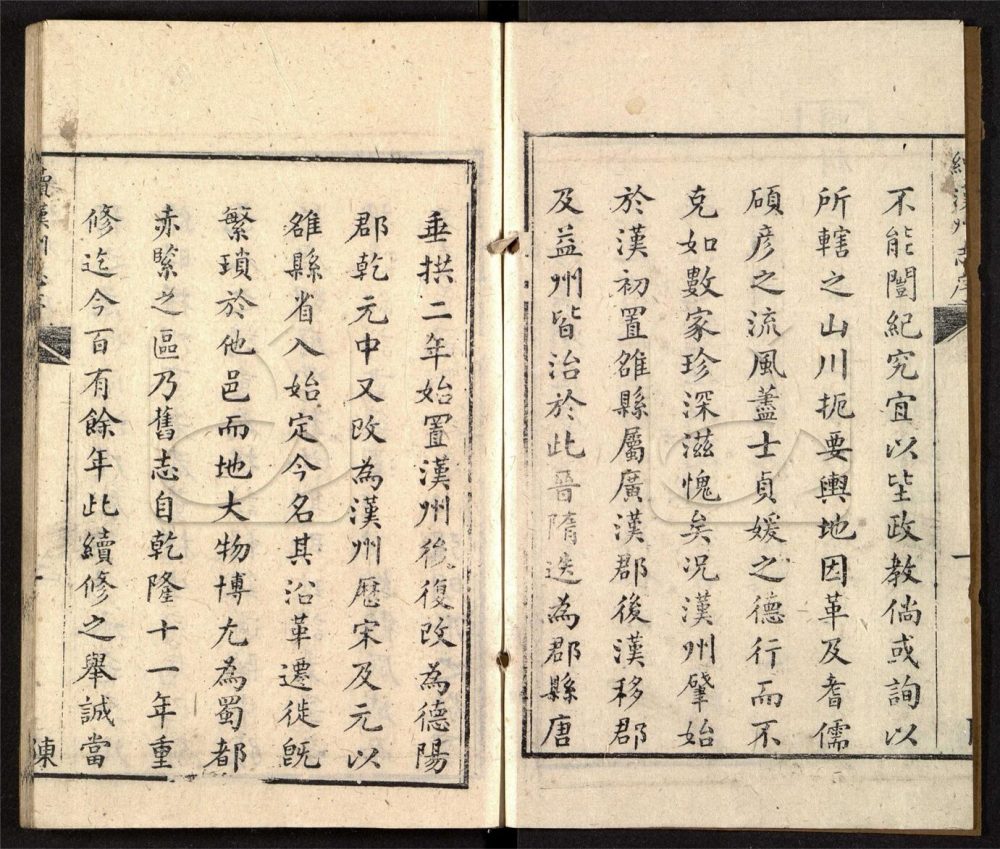 不能闓紀究宜以坒政教倘或詢以
所轄之山川扼要輿地因革及耆儒
碩彥之流風藎士貞媛之德行而不
克如數家珍深滋愧矣况漢州肈始
於漢初置雒縣屬廣漢郡後漢移郡
及益州皆治於此晉隋迭為郡縣唐
垂拱二年始置漢州後復改為德陽
郡乾元中又改為漢州歷宋及元以
雒縣省入始定今名其沿革遷徙旣
繁瑣於他邑而地大物博尤為蜀都
赤緊之區乃舊志自乾隆十一年重
修迄今百有餘年此續修之舉誠當